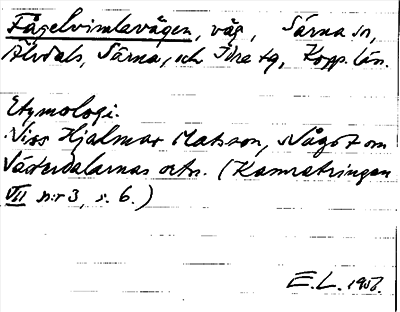 Fågelvimlavägen, väg, Särna sn,
Älvdals, Särna, och Idre tg, Kopp. län.
Etymologi.
Niss Hjalmar Matsson, Något om
Västerdalarnas ortn. (Kamratringen
VII n:r 3, s. 6.)
E. L. 1956.